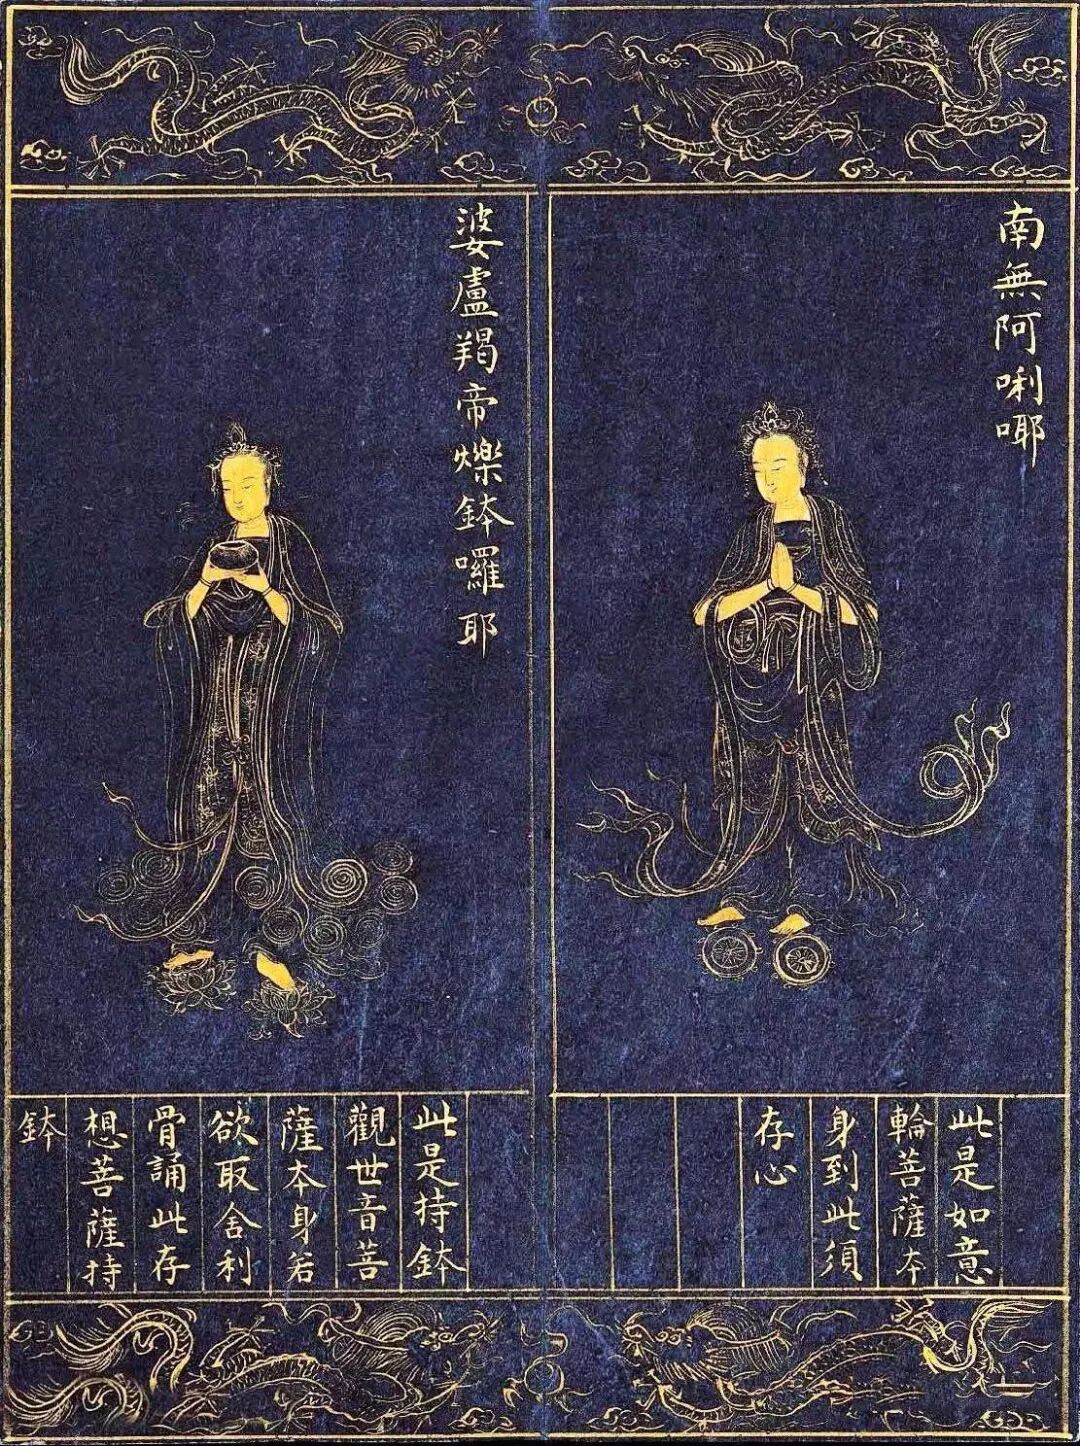 南無阿唎㖿
此是如意
輪菩薩本
身到此須
存心
婆盧羯帝爍鉢囉耶
此是持鉢
觀世音菩
薩本身若
欲取舍利
骨誦此存
想菩薩持
鉢